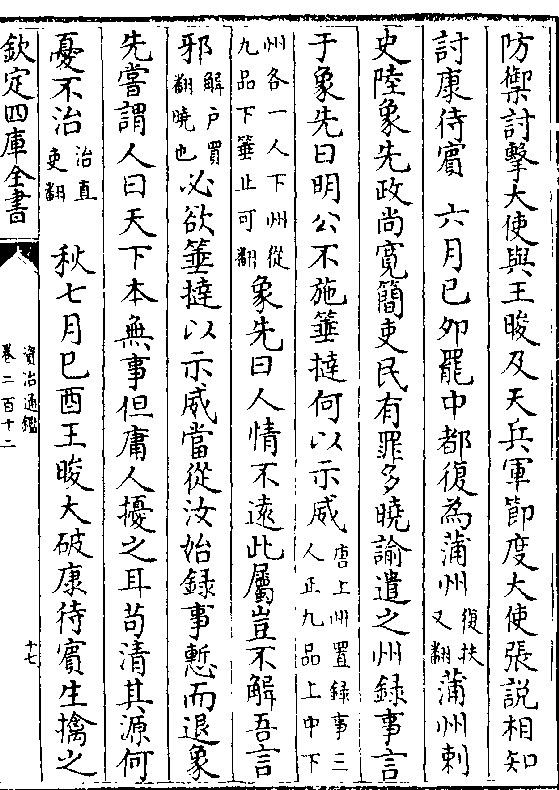 防禦討擊大使與王晙及天兵軍節度大使張説相知
討康待賓　六月已夘罷中都復為蒲州復扶又翻蒲州刺
史陸象先政尚寛簡吏民有罪多曉諭遣之州録事言
于象先曰明公不施箠撻何以示威唐上州置録事三人正九品上中下
州各一人下州從九品下箠止可翻象先曰人情不逺此屬豈不解吾言
邪解户買翻曉也必欲箠撻以示威當從汝始録事慙而退象
先嘗謂人曰天下本無事但庸人擾之耳苟清其源何
憂不治治直吏翻　秋七月巳酉王晙大破康待賓生擒之
欽定四庫全書
資治通鑑
卷二百十二
十七